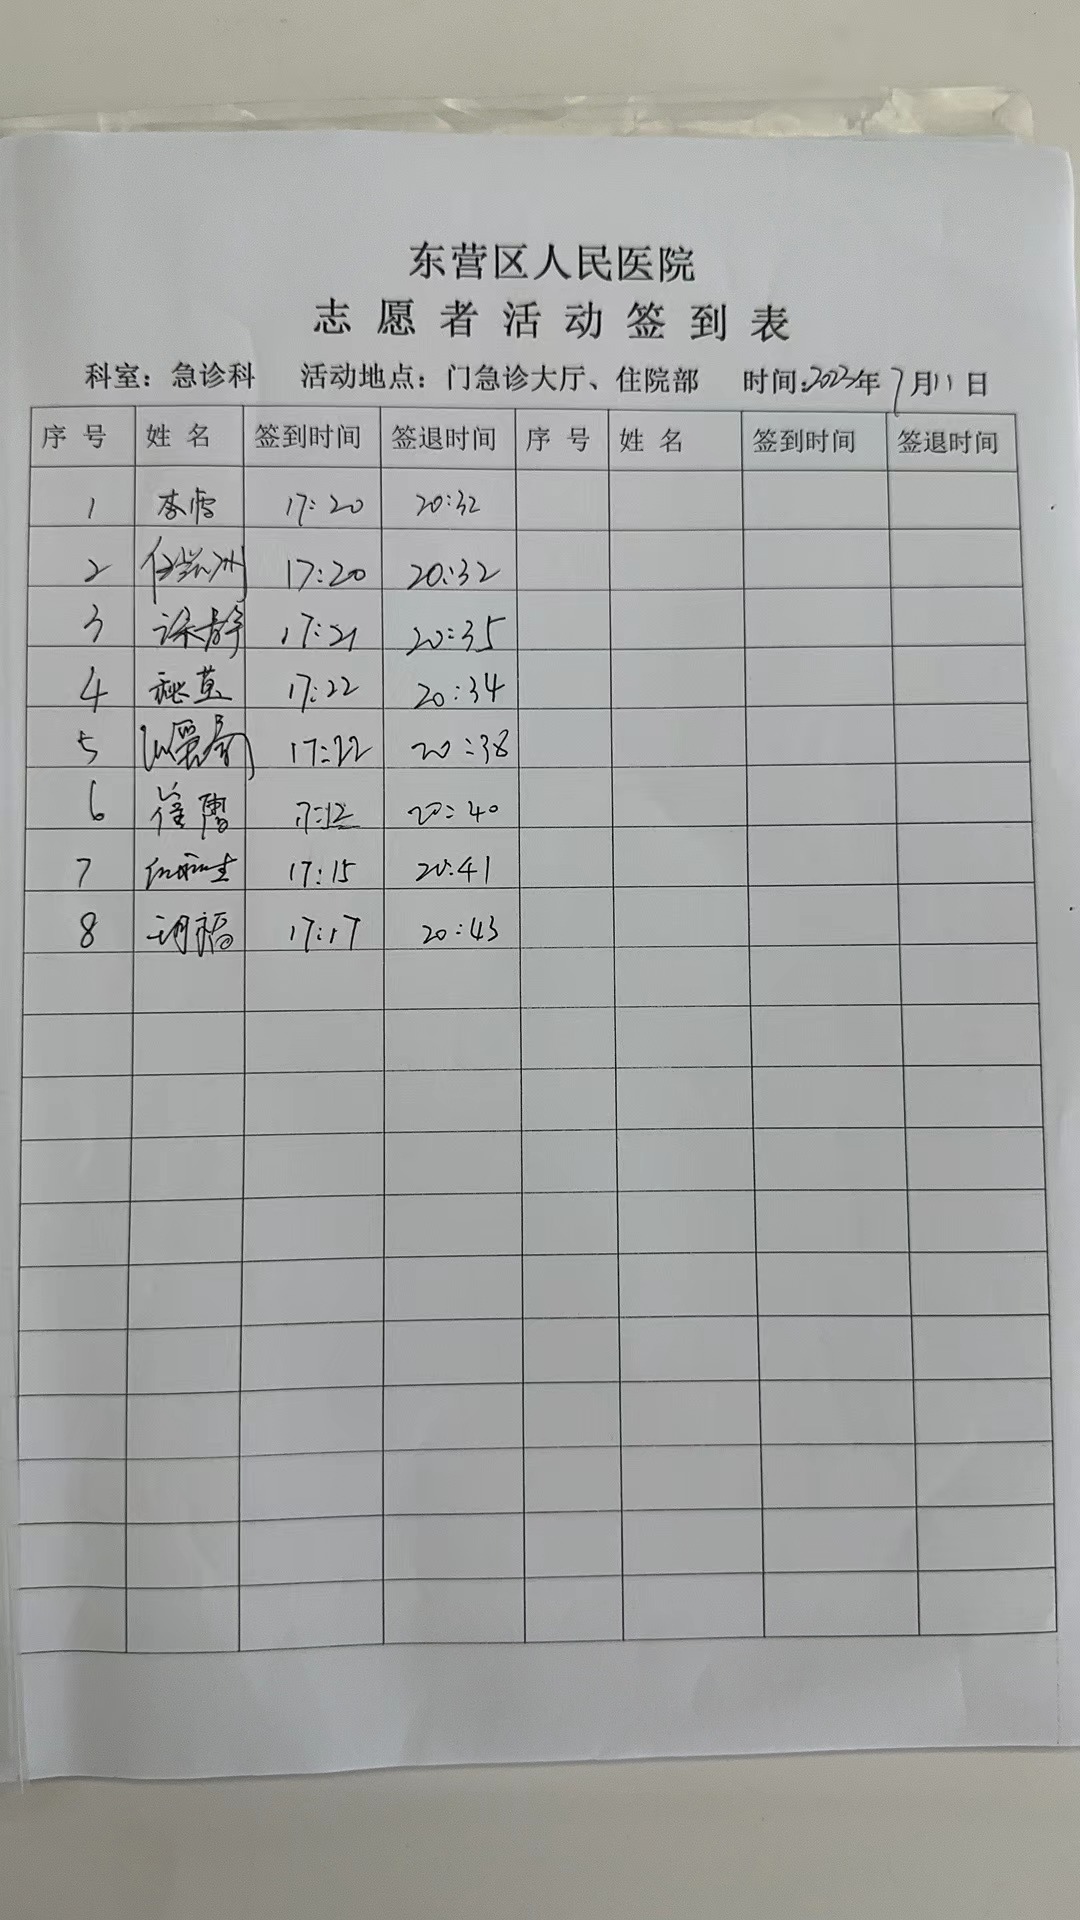 东营区人民医院
志愿者活动签到表
科室：急诊科 活动地点：门急诊大厅、住院部 时间:2023年7月11日
序号 姓名 签到时间 签退时间 序号 姓名 签到时间 签退时间
1 李雪 17:20 20:32
2 17:20 20:32
3 徐静 17:21 20:35
4 17:22 20:34
5 17:22 20:38
6 崔雪 17:12 20:40
7 17:15 20:41
8 17:17 20:43